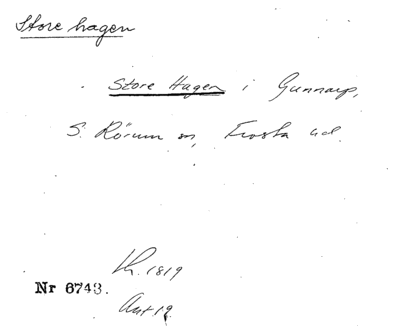 Store hagen
Store Hagen i Gunnarp,
S. Rörum sn, Frosta hd.
Lh. 1819
Nr 6743.
Akt 19.